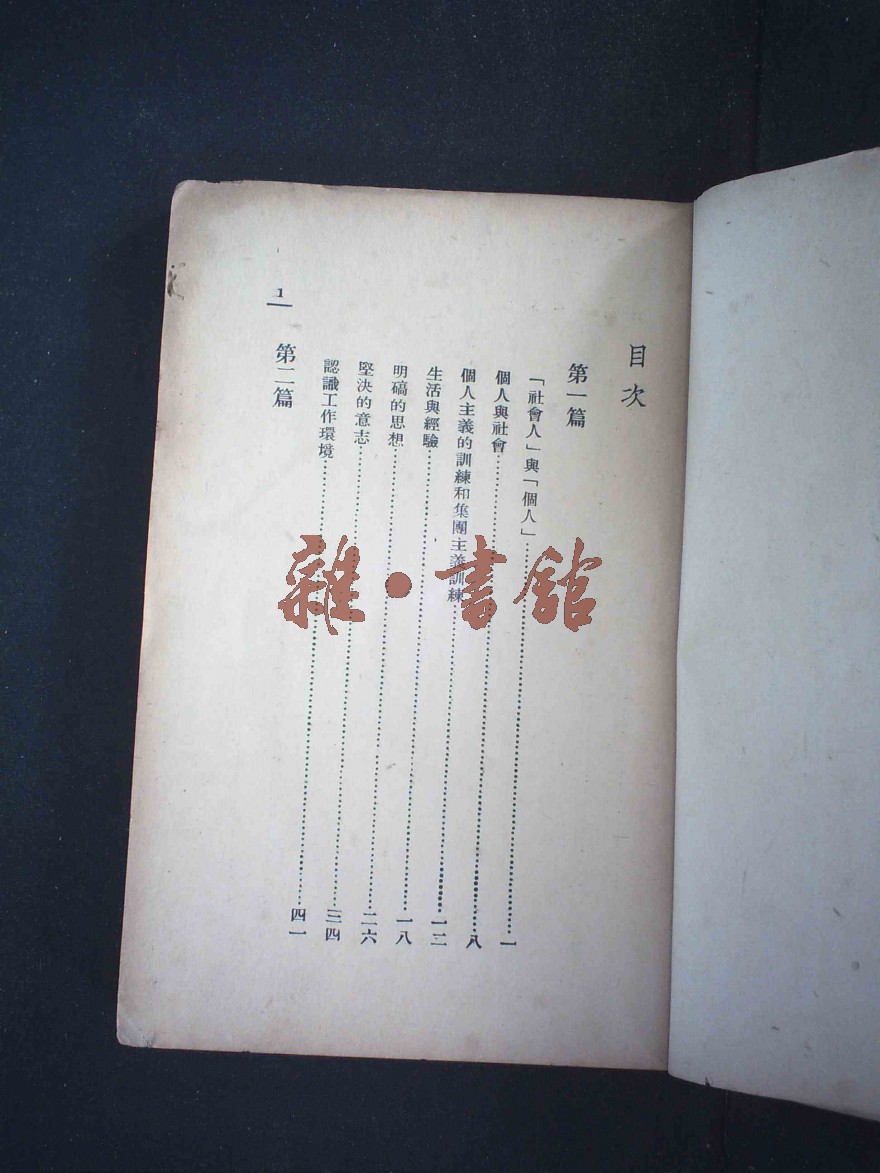 目次
第一篇
「社會人」與「個人」……一
個人與社會……八
個人主義的訓練和集團主義訓練……一二
生活與經驗……一八
明碻的思想……二六
堅決的意志……三四
認識工作環境……四一
第二篇
1
雜·書館